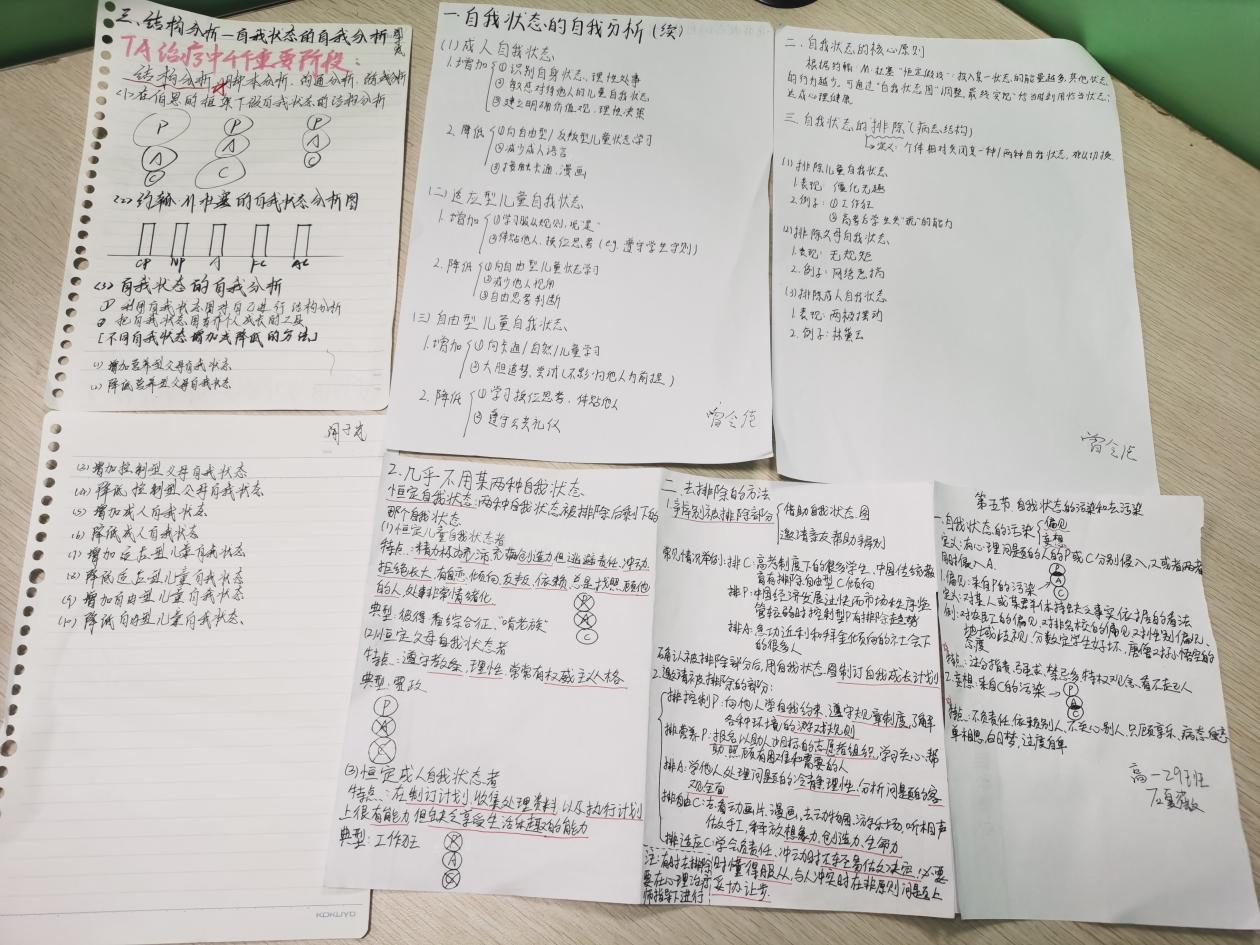 三、结构分析—自我状态的自我分析
TA治疗中4个重要阶段:
结构分析、脚本分析、沟通分析、游戏分析
(1)在伯恩的框架下做自我状态的结构分析
P P P
A A A
C C C
(2)约翰·M·杜塞的自我状态分析图
CP NP A FC AC
(3)自我状态的自我分析
① 利用自我状态图对自己进行结构分析
② 把自我状态图当作个人成长的工具
[不同自我状态增加或降低的方法]
(1)增加营养型父母自我状态
(2)降低营养型父母自我状态
(3)增加控制型父母自我状态
(4)降低控制型父母自我状态
(5)增加成人自我状态
(6)降低成人自我状态
(7)增加适应型儿童自我状态
(8)降低适应型儿童自我状态
(9)增加自由型儿童自我状态
(10)降低自由型儿童自我状态
KOKUYO
一、自我状态的自我分析(续)
(1)成人自我状态
1.增加 ①识别自身状态、理性处事
②敏感对待他人的儿童自我状态
③建立明确价值观、理性决策
2.降低 ①向自由型/叛逆型儿童状态学习
②减少成人语言
③接触卡通、漫画
(二)适应型儿童自我状态
1.增加 ①学习服从规则
②体贴他人、换位思考(eg.遵守学生守则)
2.降低 ①向自由型儿童状态学习
②减少他人视角
③自由思考判断
(三)自由型儿童自我状态
1.增加 ①向卡通/自然/儿童学习
②大胆追梦、尝试(不影响他人为前提)
2.降低 ①学习换位思考、体贴他人
②遵守公共礼仪
二、自我状态的核心原则
根据约翰·M·杜塞“恒定假设”:投入某一状态的能量越多,其他状态
的行为越少,可通过“自我状态图”调整,最终实现“恰当时利用恰当状态”,
达成心理健康
三、自我状态的“排除”(病态结构)
定义:个体相对关闭某一种/两种自我状态,难以切换
(1)排除儿童自我状态
1.表现:僵化无趣
2.例子:①工作狂
②高考后学生失“玩”的能力
(2)排除父母自我状态
1.表现:无规矩
2.例子:网络愚病
(3)排除成人自我状态
1.表现:两极摆动
2.例子:林黛玉
2.几乎不用某两种自我状态
恒定自我状态:两种自我状态被排除后剩下的
那个自我状态
(1)恒定儿童自我状态者
特点:精力旺沛,充满创造力但逃避责任、冲动、
拒绝长大,有自恋倾向、反叛、依赖、总是找照顾他
的人,处事非常情绪化
典型:彼得·潘综合征、“啃老族”
P
A
C
(2)恒定父母自我状态者
特点:遵守教条、理性,常常有权威主义人格
典型:贾政
P
A
C
(3)恒定成人自我状态者
特点:在制订计划、收集处理资料以及执行计划
上很有能力,但缺乏享受生活乐趣的能力
典型:工作狂
P
A
C
二、去排除的方法
1.辨别被排除部分 借助自我状态图
邀请亲友帮助辨别
常见情况举例:排C:高考制度下的很多学生,中国传统教
育有排除自由型C倾向
排P:中国经济发展过快而市场秩序监
管较弱时控制型P有排除走势
排A:急功近利和拜金倾向的社会下
的很多人
确认被排除部分后,用自我状态图制订自我成长计划
2.邀请被排除的部分:
排控制P:向他人学自我约束、遵守规章制度,了解并
各种环境的游戏规则
排营养P:报名以助人为目标的志愿者组织,学习关心、帮
助、照顾有困难和需要的人
排A:学他人处理问题的冷静理性,分析问题的客
观全面
排自由C:活:看动画片、漫画,去动物园、游乐场,听相声
做手工,释放想象力、创造力、生命力
排适应C:学会负责任,冲动时不轻易做决定,必要
时懂得服从,与人冲突时在非原则问题上
妥协让步
注:有时去排除
要在心理治疗
师指导下进行
第五节 自我状态的污染和去污染
一、自我状态的污染 偏见
妄想
定义:有心理问题的人的P或C分别侵入,又或者两者
同时侵入A.
1.偏见:来自P的污染 P
A
C
定义:对某人或某群体持缺乏事实依据的看法
例:对农民工的偏见、对非名校的偏见、对性别偏见、
地域歧视,分数定学生好坏,唐僧对孙悟空的
态度
2.妄想:来自C的污染 P
A
C
特点:不负责任,依赖别人,不关心别人,只顾享乐
单相思,白日梦,过度自卑
高一29班